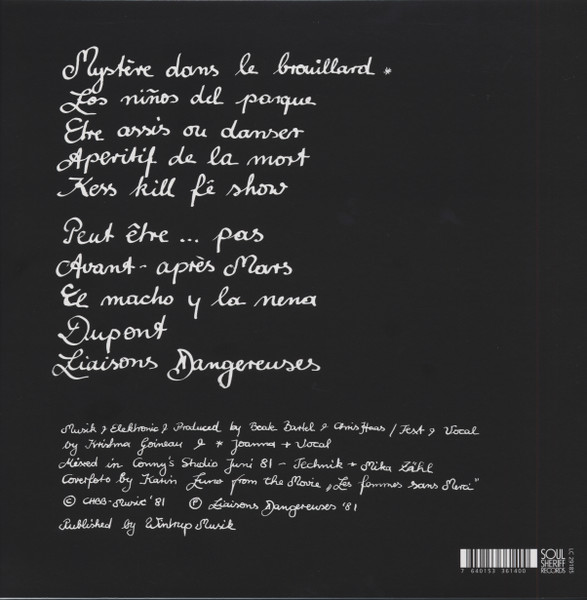 Mystère dans le brouillard *
Los niños del parque
Etre assis ou danser
Aperitif de la mort
Kess kill fê show
Peut être ... pas
Avant-après Mars
El macho y la nena
Dupont
Liaisons Dangereuses
Musik & Elektronic & Produced by Beate Bartel & Chris Haas / Text & Vocal
by Krishna Goineau & * Joanna + Vocal
Mixed in Conny's Studio Juni 81 – Technik + Mika Zähl
Coverfoto by Karin Luna from the Movie „Les femmes sans Merci"
© CHBB-Music '81 ℗ Liaisons Dangereuses '81
Published by Wintrup Musik
7 640153 361400
SOUL
SHERIFF
RECORDS
LC 29185